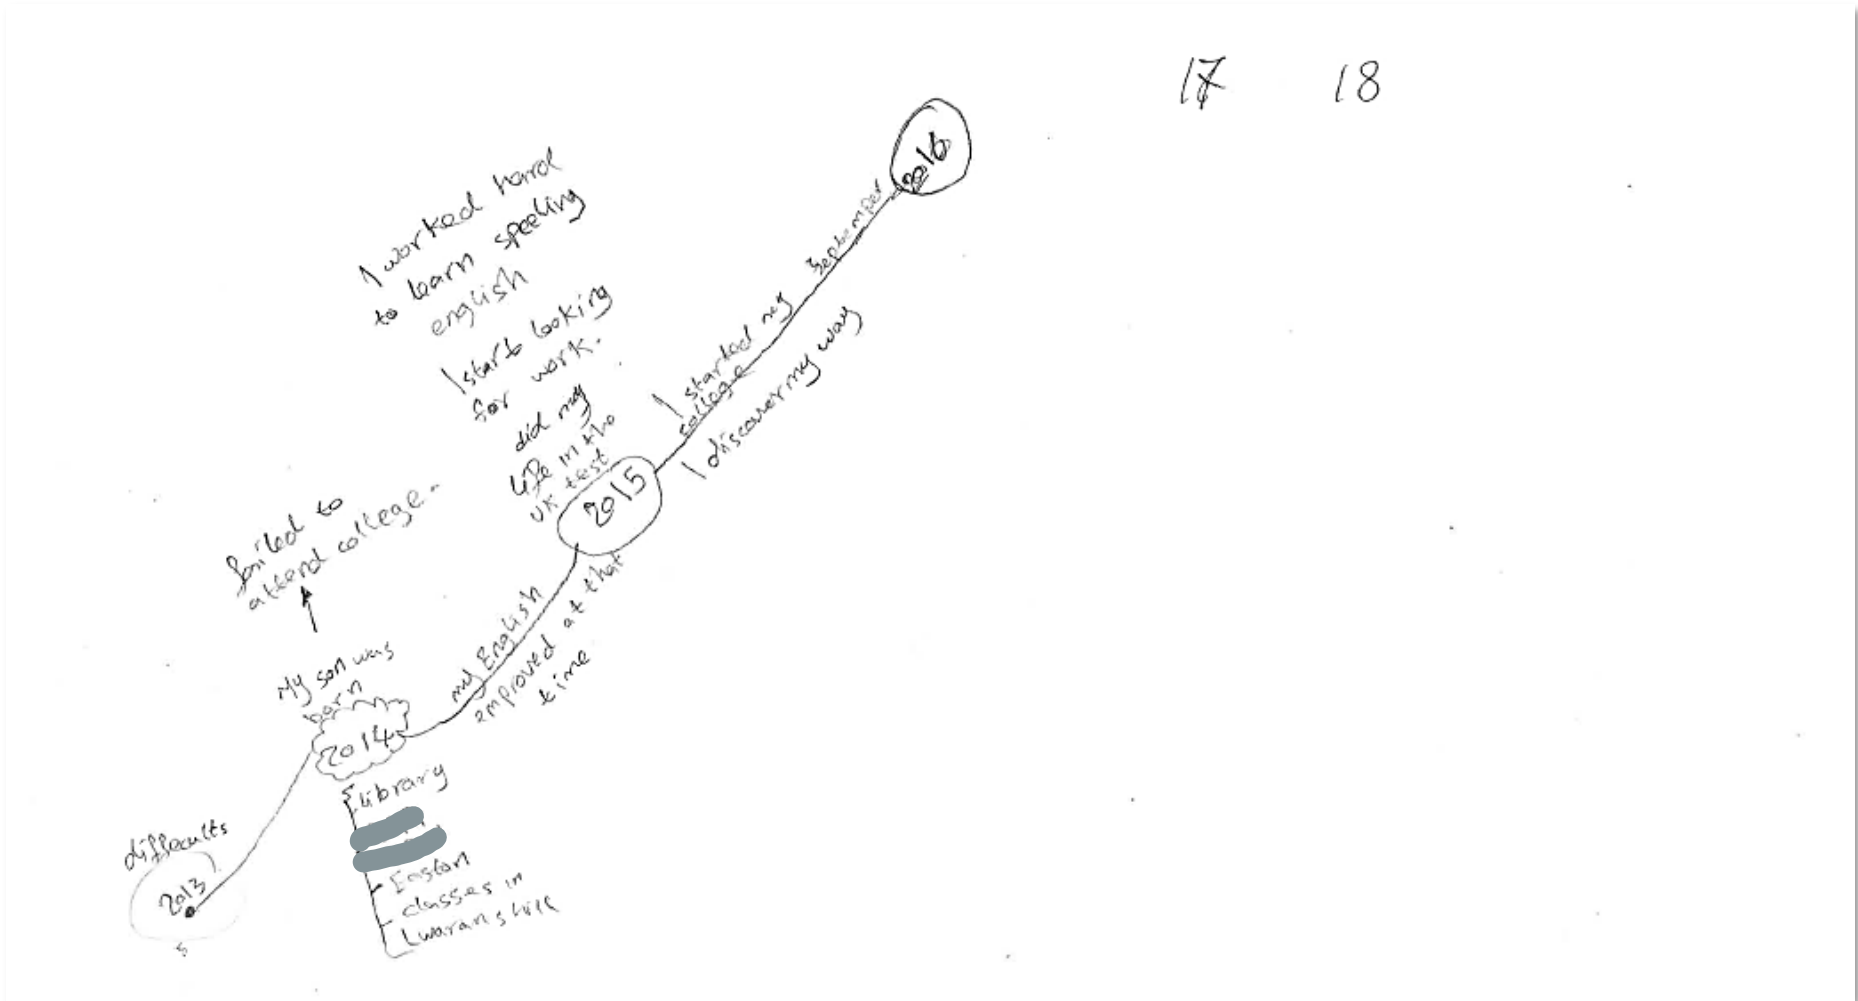 17 18
2016
I worked hard
to learn speeking
english
I start looking
for work.
did my
life in the
UK test
Septemper
I started my
college
I discover my way
2015
failed to
attend college.
my English
improved at that
time
My son was
born
2014
library
Easton
classes in
difficults
2013